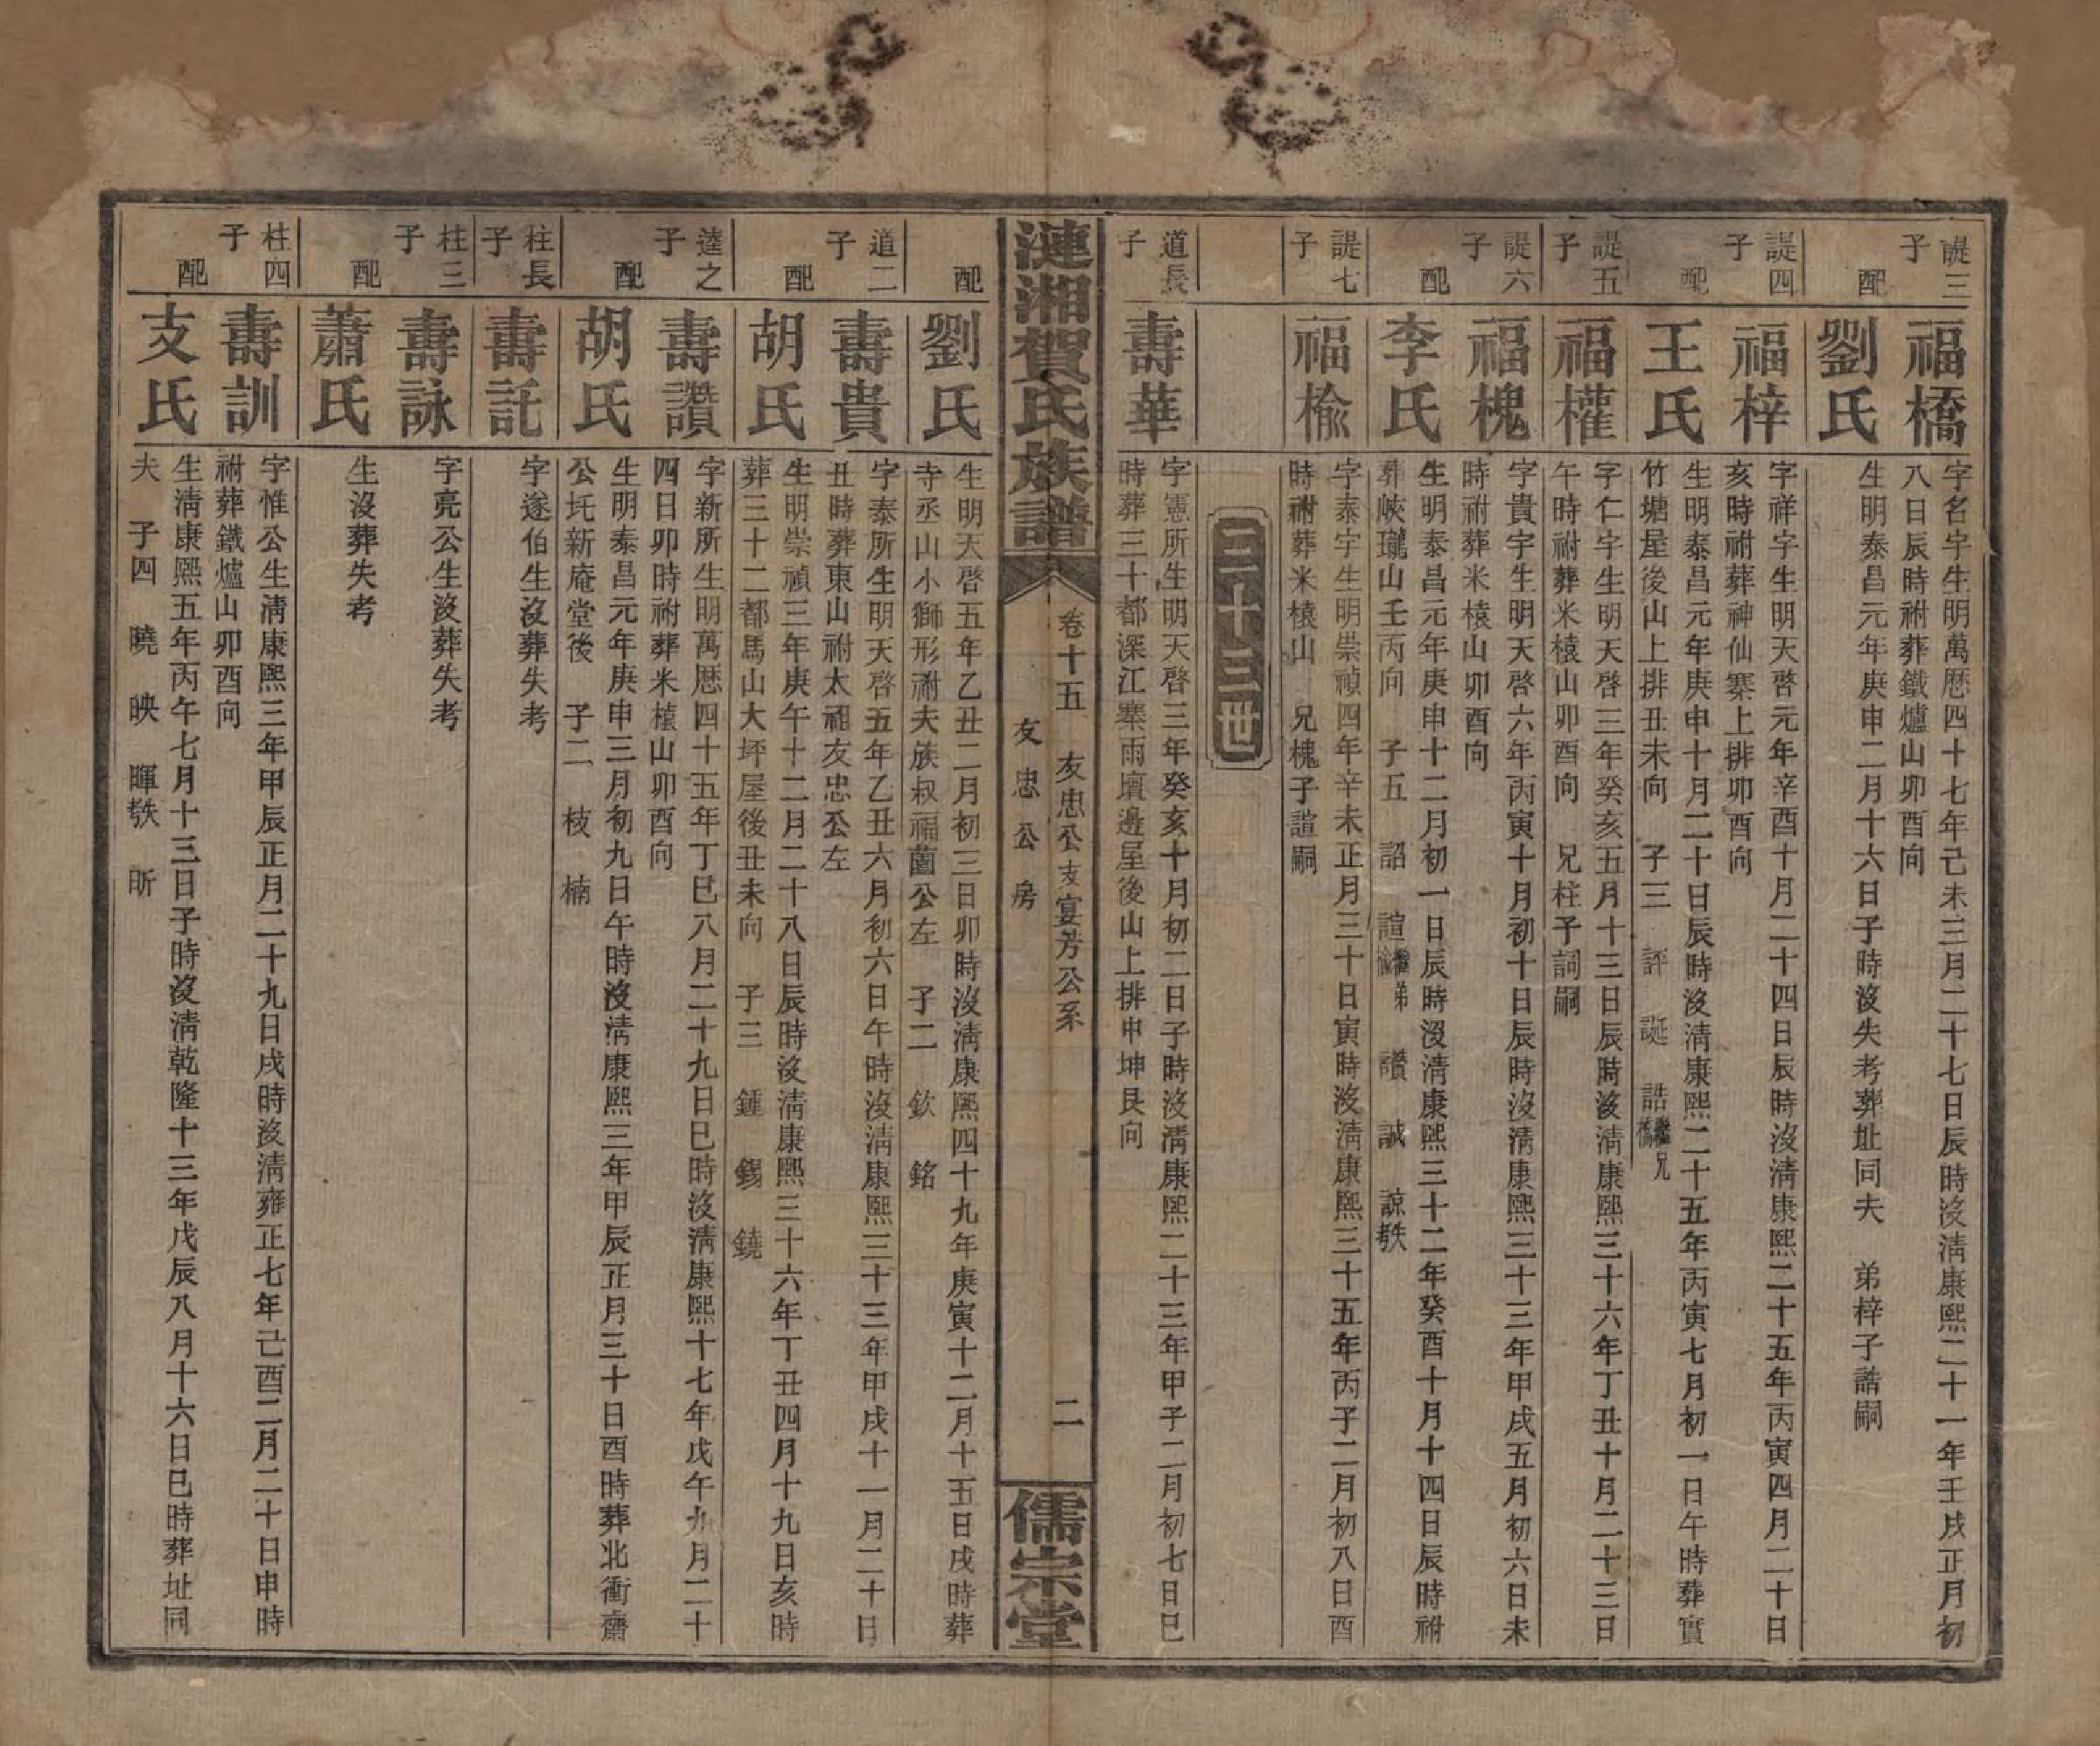 諟三子
福橋
字名宇生明萬厯四十七年己未三月二十七日辰時沒淸康熙二十一年壬戌正月初
八日辰時祔葬鐵爐山卯酉向
配
劉氏
生明泰昌元年庚申二月十六日子時沒失考葬址同夫　弟梓子誥嗣
諟四子
福梓
字祥宇生明天啓元年辛酉十月二十四日辰時沒淸康熙二十五年丙寅四月二十日
亥時祔葬神仙寨上排卯酉向
配
王氏
生明泰昌元年庚申十月二十日辰時沒淸康熙二十五年丙寅七月初一日午時葬實
竹塘屋後山上排丑未向　子三　評　誕　誥繼兄橋
諟五子
福權
字仁宇生明天啓三年癸亥五月十三日辰時沒淸康熙三十六年丁丑十月二十三日
午時祔葬米櫏山卯酉向　兄柱子詞嗣
諟六子
福槐
字貴宇生明天啓六年丙寅十月初十日辰時沒淸康熙三十三年甲戌五月初六日未
時祔葬米櫏山卯酉向
配
李氏
生明泰昌元年庚申十二月初一日辰時沒淸康熙三十二年癸酉十月十四日辰時祔
葬峽瓏山壬丙向　子五　詔　諠繼弟檢　讚　誠　諒教
諟七子
福檢
字泰宇生明崇禎四年辛未正月三十日寅時沒淸康熙三十五年丙子二月初八日酉
時祔葬米櫏山　兄槐子諠嗣
三十三世
道長子
壽華
字憲所生明天啓三年癸亥十月初二日子時沒淸康熙二十三年甲子二月初七日巳
時葬三十都深江寨雨壇邊屋後山上排申坤艮向
漣湘賀氏族譜
卷十五　友忠公支宴芳公系　二
友忠公房
儒宗堂
配
劉氏
生明天啓五年乙丑二月初三日卯時沒淸康熙四十九年庚寅十二月十五日戌時葬
寺丞山小獅形祔夫族叔福𦺇公左　子二　欽　銘
道二子
壽貴
字泰所生明天啓五年乙丑六月初六日午時沒淸康熙三十三年甲戌十一月二十日
丑時葬東山祔太祖友忠公左
配
胡氏
生明崇禎三年庚午十二月二十八日辰時沒淸康熙三十六年丁丑四月十九日亥時
葬三十二都馬山大坪屋後丑未向　子三　鍾　錫　鐃
逵之子
壽讚
字新所生明萬厯四十五年丁巳八月二十九日巳時沒淸康熙十七年戊午九月二十
四日卯時祔葬米櫏山卯酉向
配
胡氏
生明泰昌元年庚申三月初九日午時沒淸康熙三年甲辰正月三十日酉時葬北衝齋
公圫新庵堂後　子二　枝　楠
柱長子
壽託
字遂伯生沒葬失考
柱三子
壽詠
字亮公生沒葬失考
配
蕭氏
生沒葬失考
柱四子
壽訓
字惟公生淸康熙三年甲辰正月二十九日戌時沒淸雍正七年己酉二月二十日申時
祔葬鐵爐山卯酉向
配
支氏
生淸康熙五年丙午七月十三日子時沒淸乾隆十三年戊辰八月十六日巳時葬址同
夫　子四　曉　映　暉教　昕